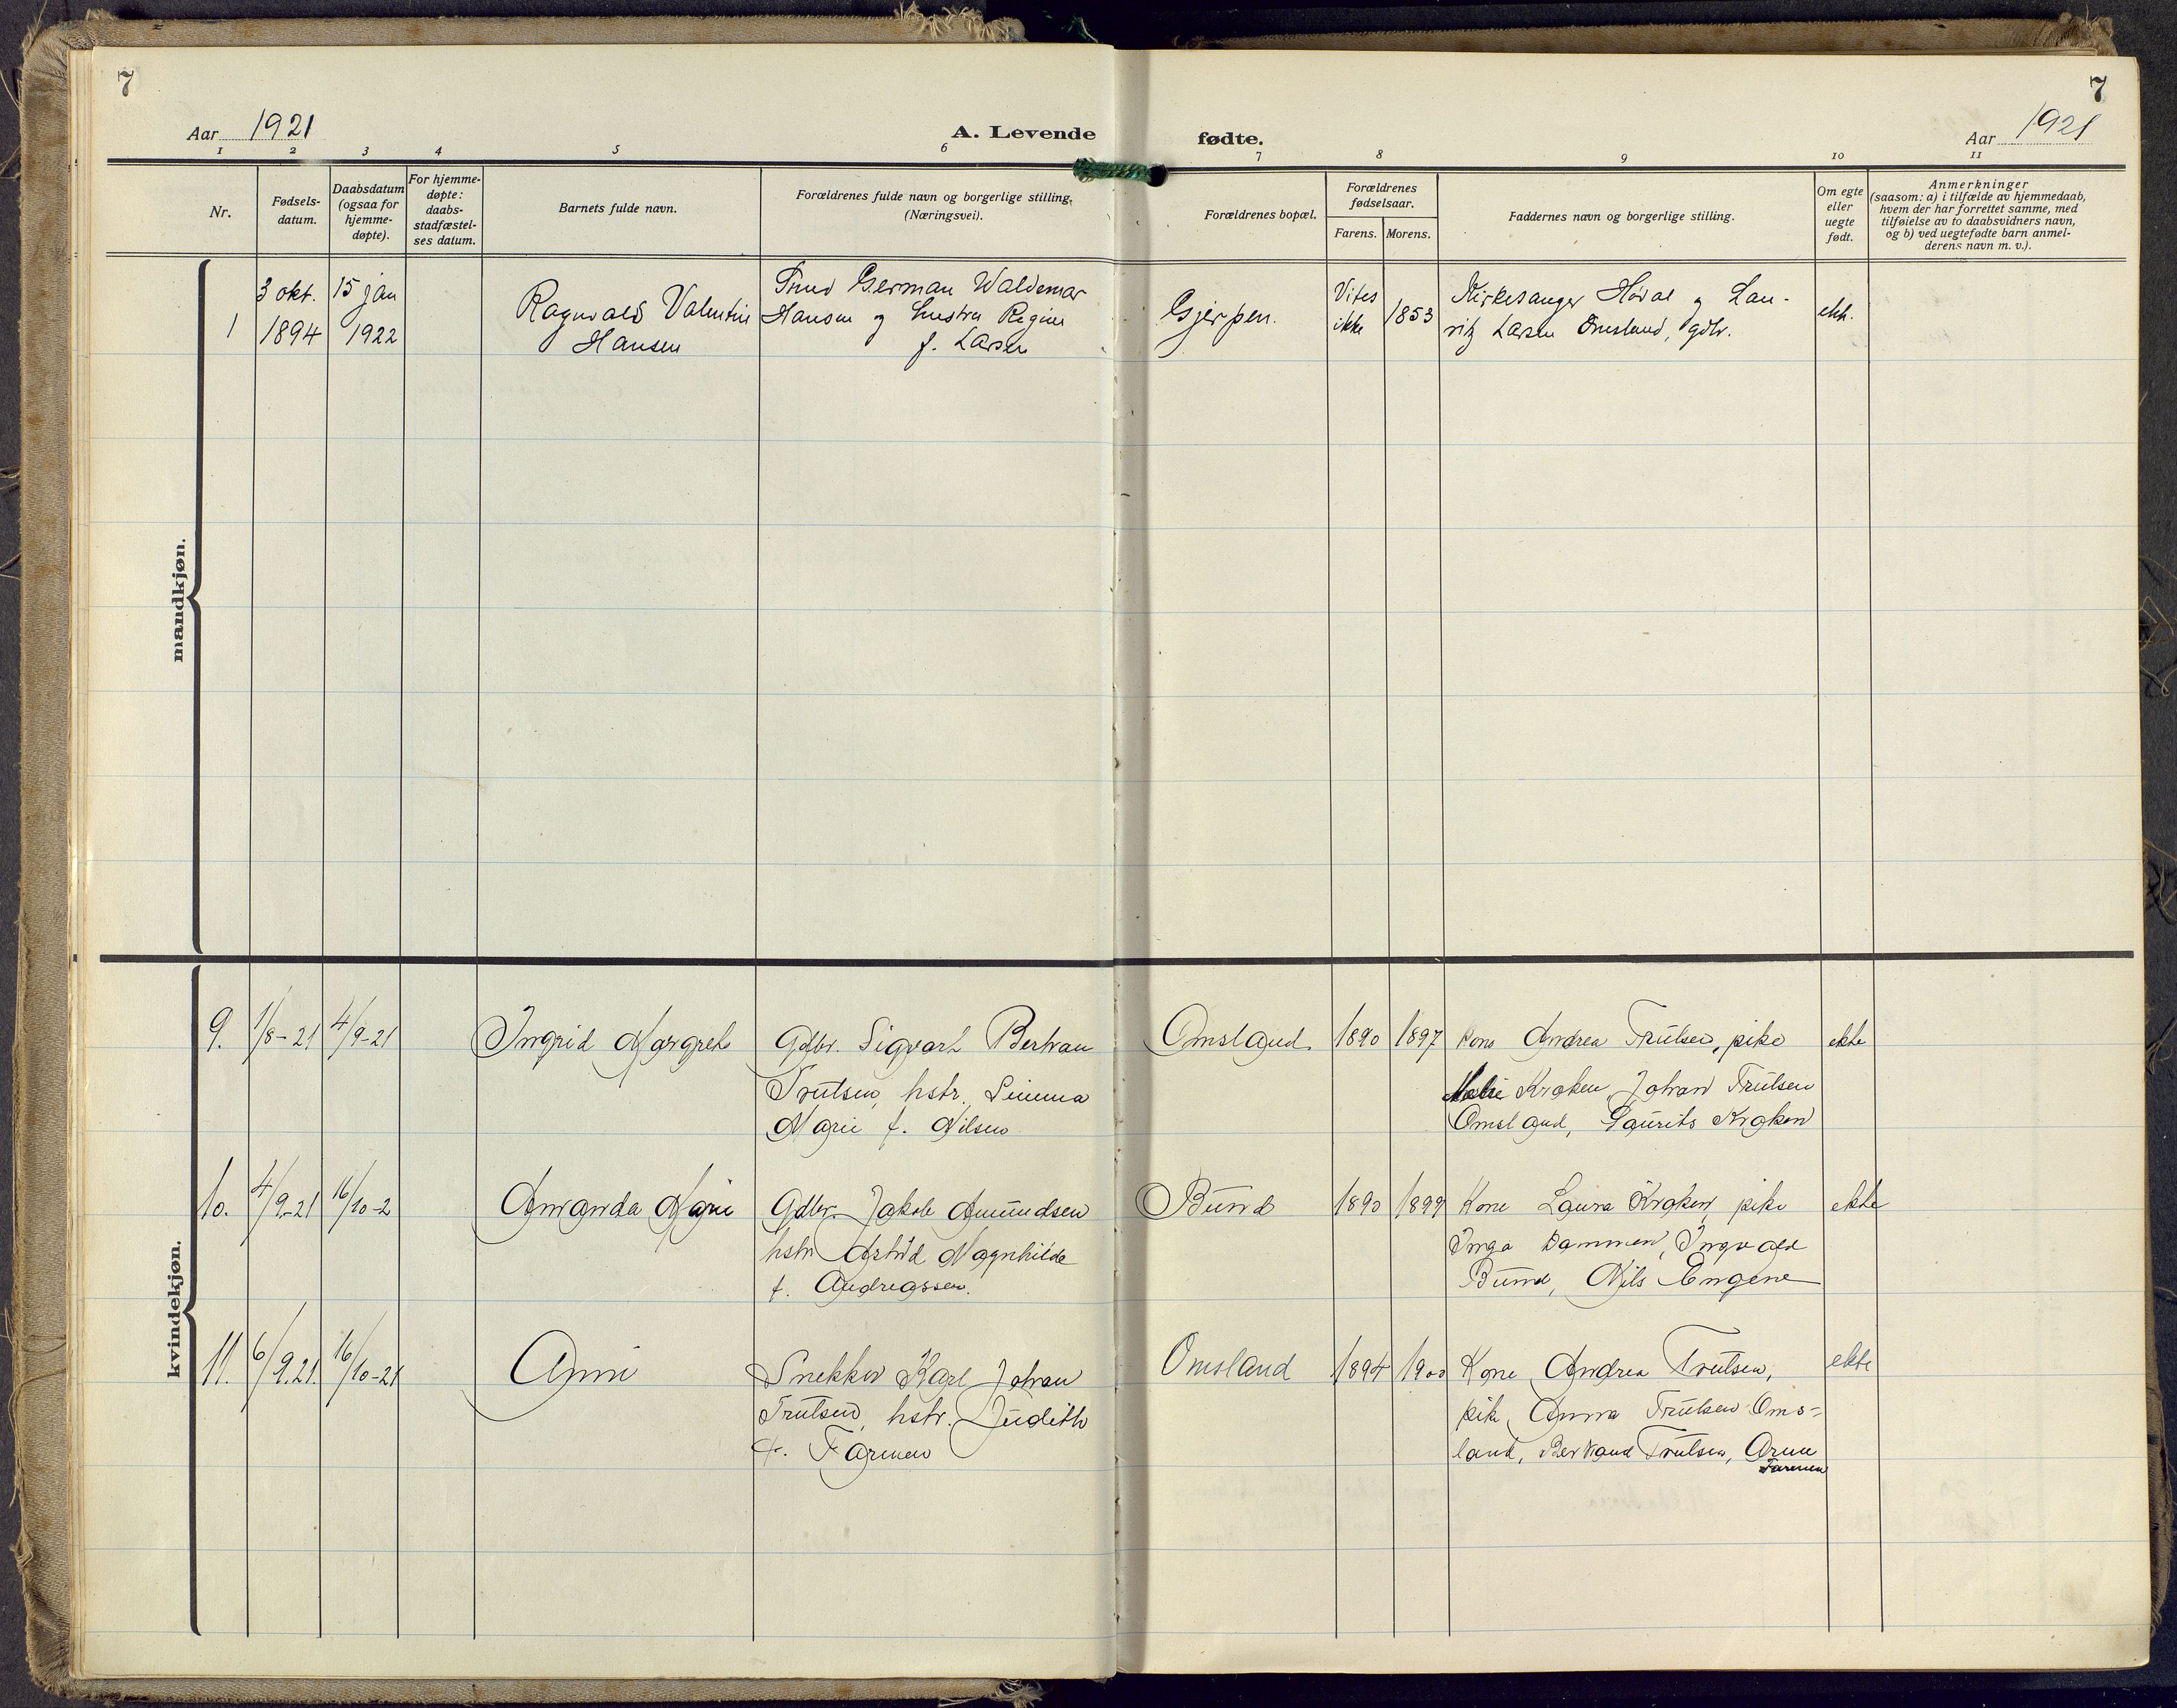 7
7
Aar 1921
A. Levende
fødte.
Aar 1921
1 2 3 4 5 6 7 8 9 10 11
Nr.
Fødsels-
datum.
Daabsdatum
(ogsaa for
hjemme-
døpte).
For hjemme-
døpte:
daabs-
stadfæstel-
ses datum.
Barnets fulde navn.
Forældrenes fulde navn og borgerlige stilling.
(Næringsvei).
Forældrenes bopæl.
Forældrenes
fødselsaar.
Farens. Morens.
Faddernes navn og borgerlige stilling.
Om egte
eller
uegte
født.
Anmerkninger
(saasom: a) i tilfælde av hjemmedaab,
hvem der har forrettet samme, med
tilføielse av to daabsvidners navn,
og b) ved uegtefødte barn anmel-
derens navn m. v.).
mandkjøn.
1
3 okt.
1894
15 jan
1922
Ragnvald Valentin
Hansen
German Waldemar
Hansen og Regine
f. Larsen
Gjerpen.
Vites
ikke
1853
Kirkesanger Høidal og Lau-
ritz Larsen Omsland, gdbr.
ekt.
kvindekjøn.
9.
1/8-21
4/9-21
Ingrid Margrete
Gdbr. Sigvart Bertran
Trulsen, hstr.
Marie f. Nilsen
Omsland
1890
1897
Kone Andrea Trulsen, pike
Kroken, Johan Trulsen
Omsland, Laurits Kroken
ekte
10.
4/9-21
16/10-2
Amanda Marie
Gdbr. Jakob Amundsen
hstr Astrid Magnhilde
f. Andreassen.
Bund
1890
1899
Kone Laura Kroken, pike
Inga Dammen, Ingvald
Bund, Nils Engene
ekte
11.
6/9.21.
16/10-21
Anni
Snekker Karl Johan
Trulsen, hstr. Judith
f. Farmen
Omsland
1894
1900
Kone Andrea Trulsen,
pike Anna Trulsen Oms=
land, Bertrand Trulsen, Arne
Farmen
ekte